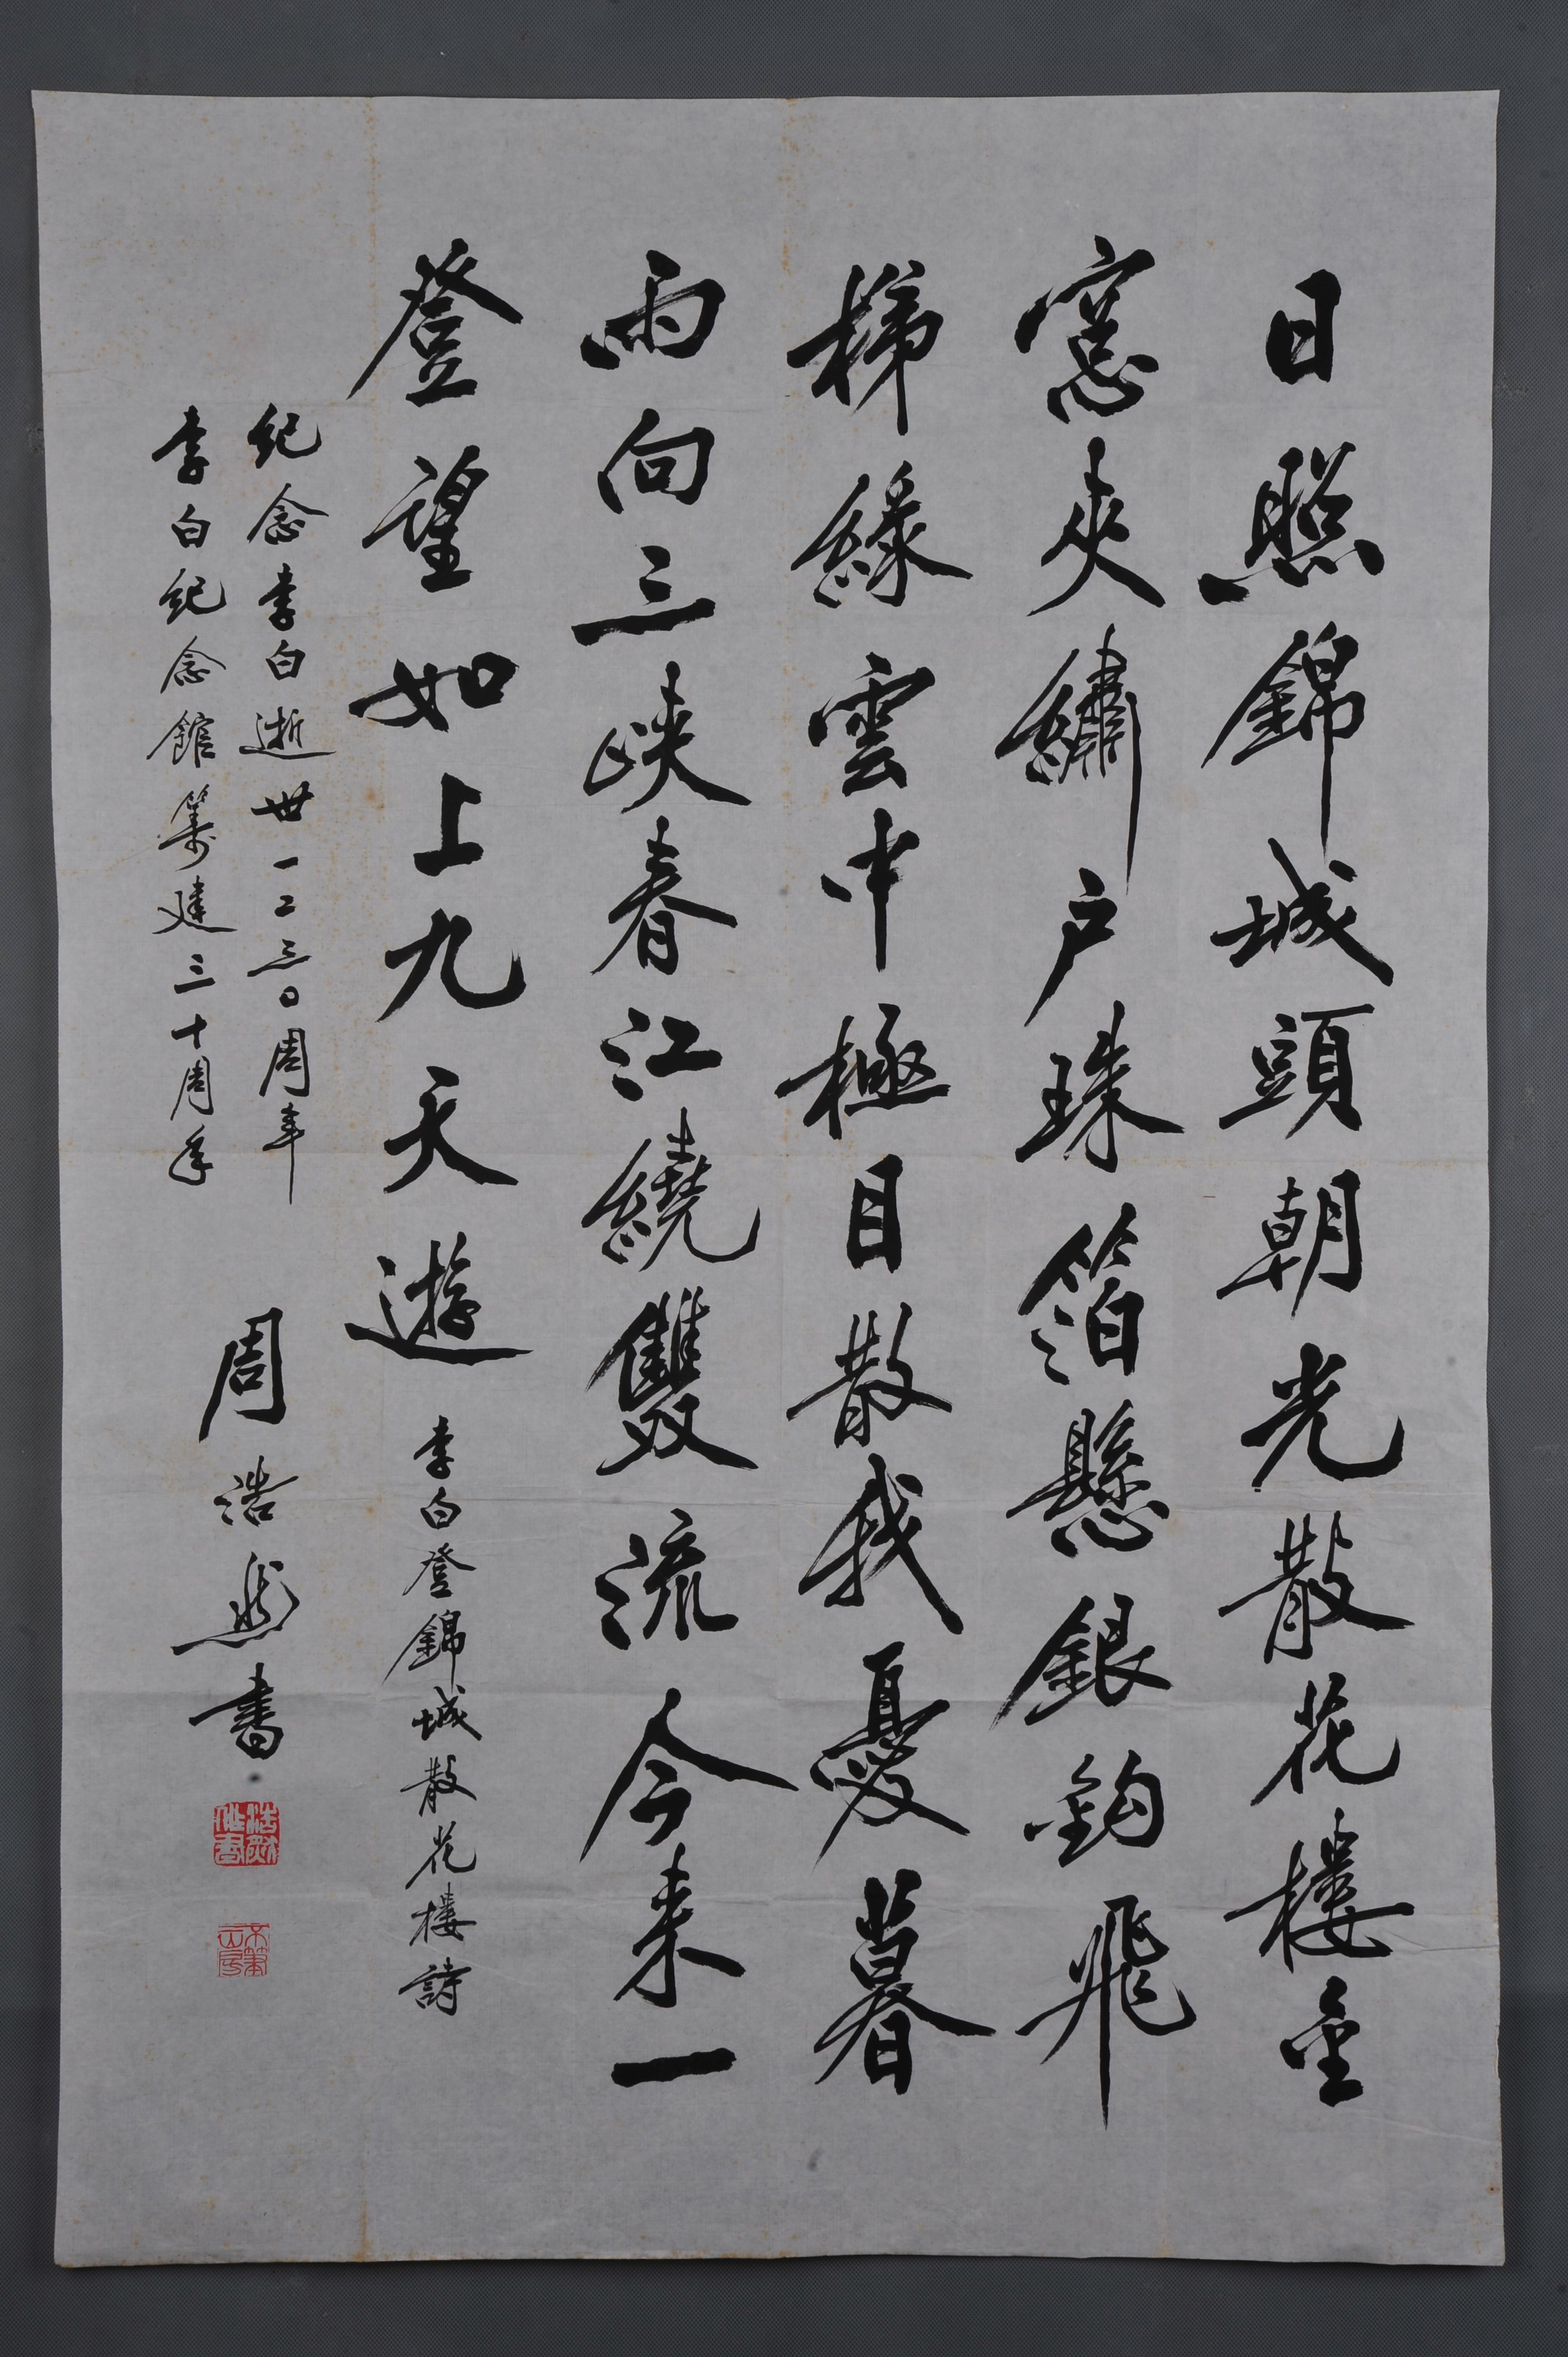 日照錦城頭朝光散花樓金
窓夾繡户珠箔懸銀鈎飛
梯緣雲中極目散我憂暮
雨向三峽春江繞雙流今来一
登望如上九天遊
李白登錦城散花樓詩
纪念李白逝世一二三〇周年
李白纪念館筹建三十周年
周浩然書
浩然作書